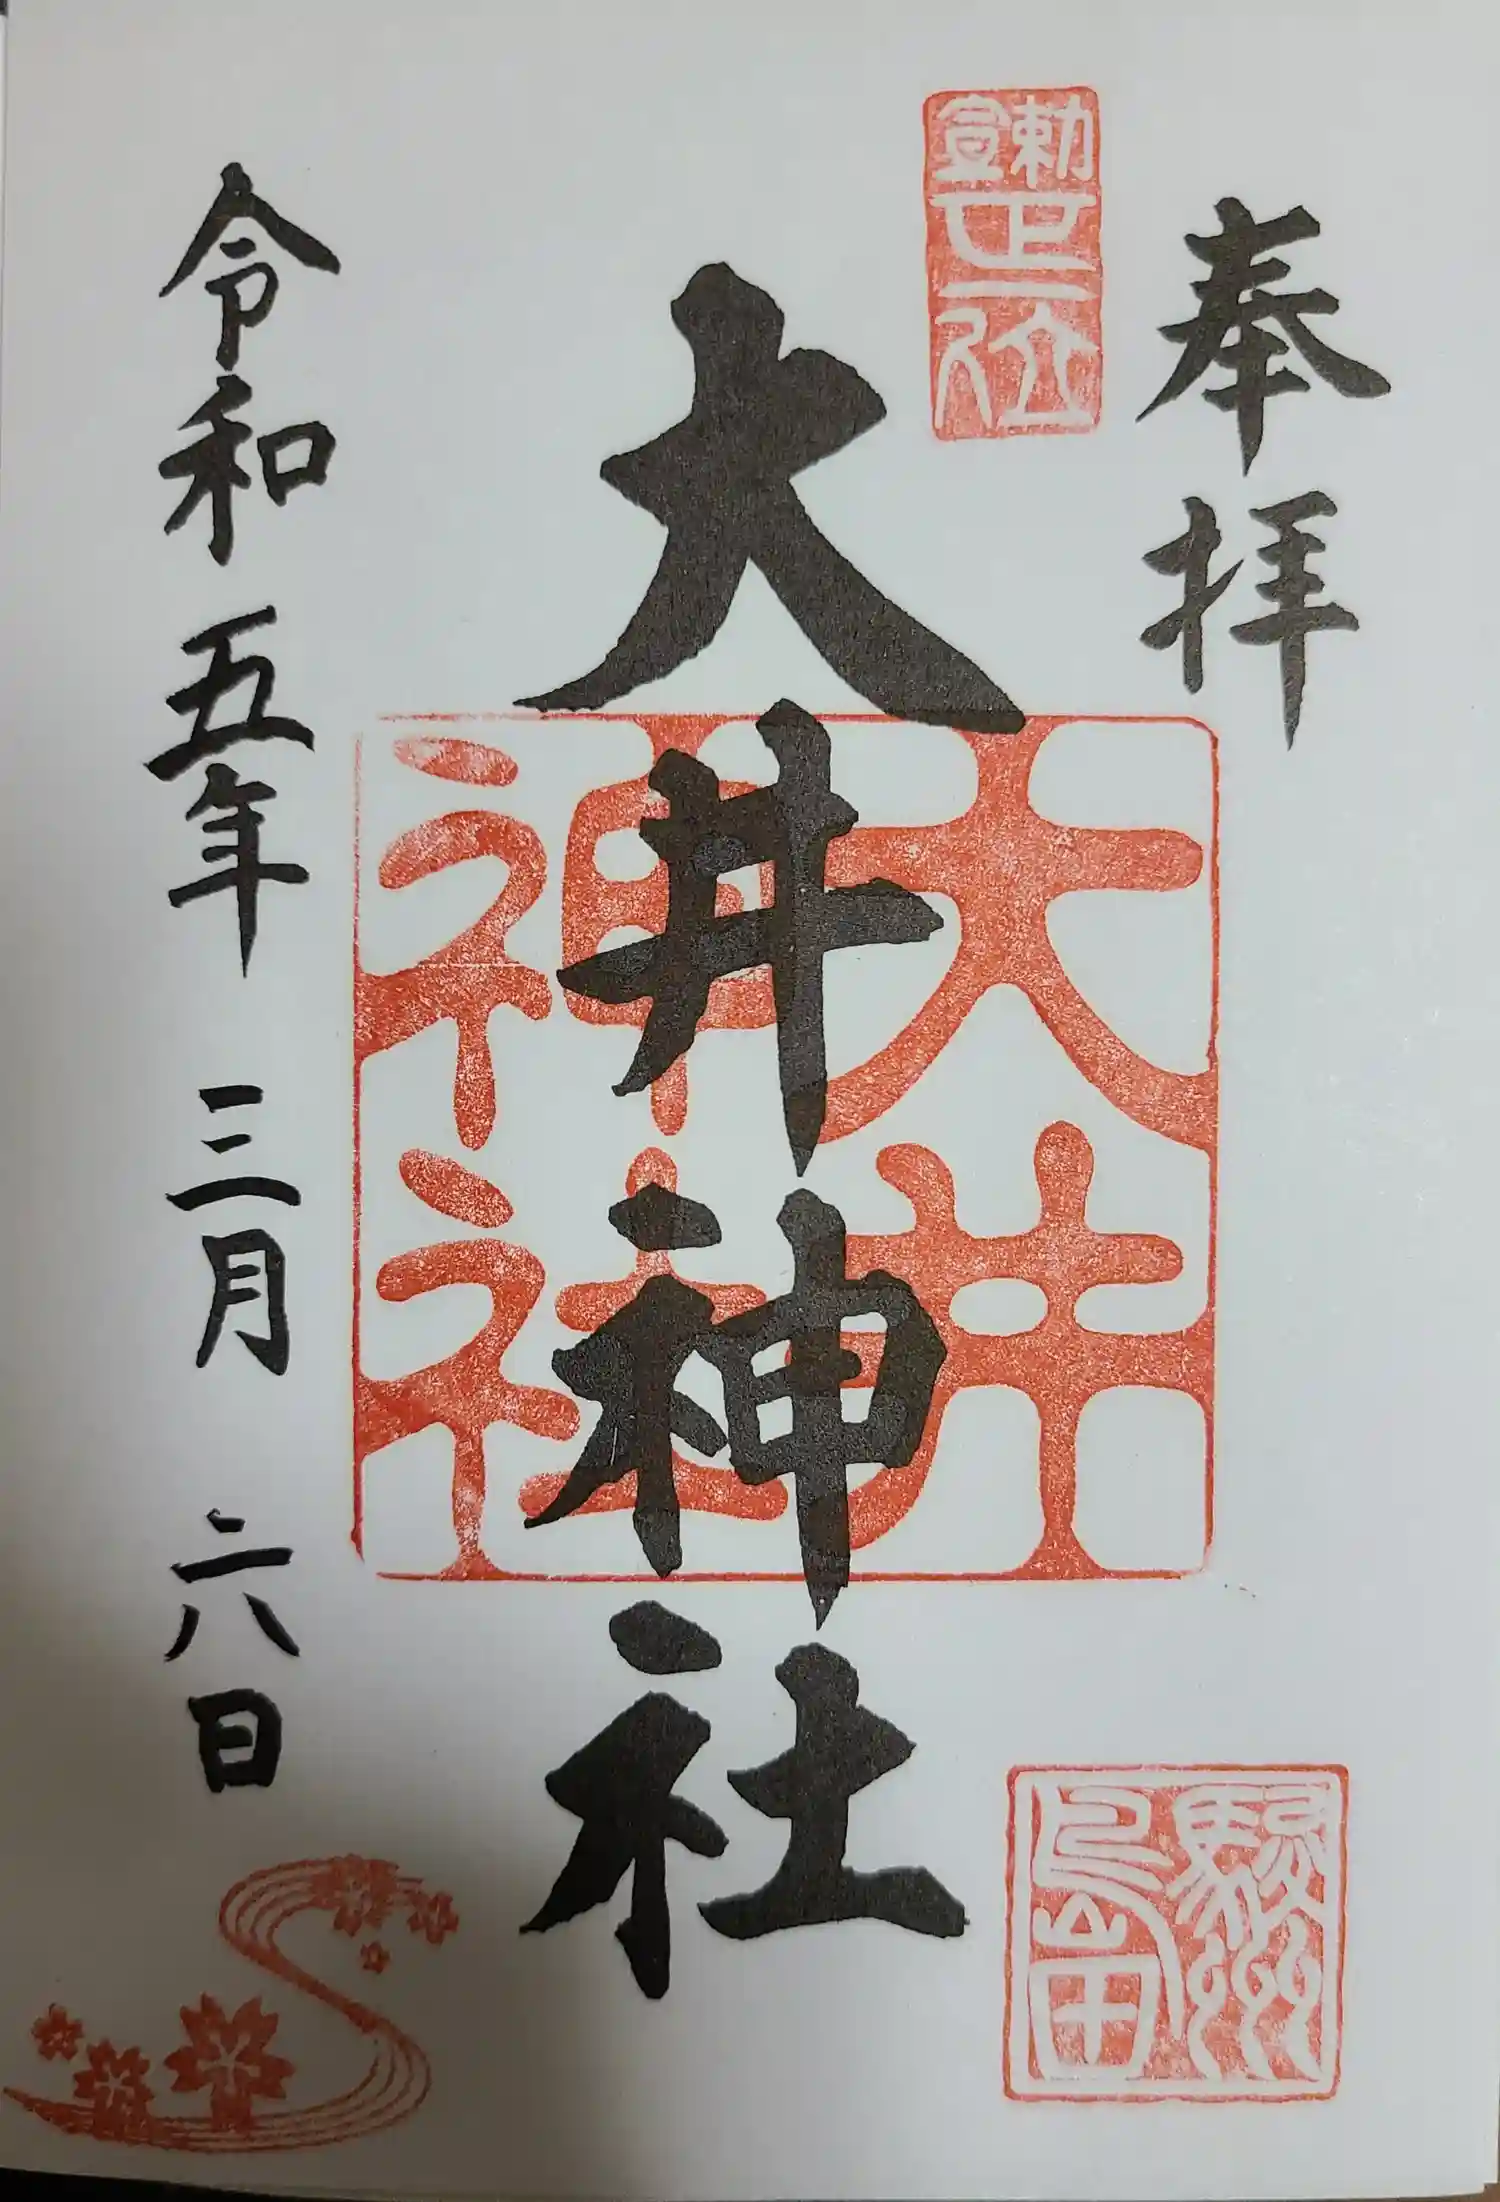 奉拝
勅宣
正一位
大井神社
大井
神社
駿州
島田
令和五年三月二八日